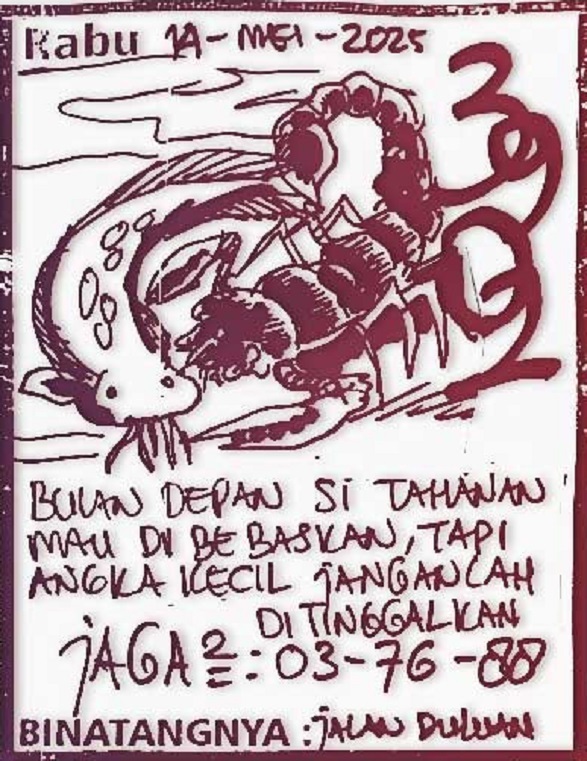 Rabu 14-MEI-2025
BULAN DEPAN SI TAHANAN
MAU DI BEBASKAN, TAPI
ANGKA KECIL JANGANLAH
DITINGGALKAN
JAGA2 =: 03-76-88
BINATANGNYA : JALAN DULUAN